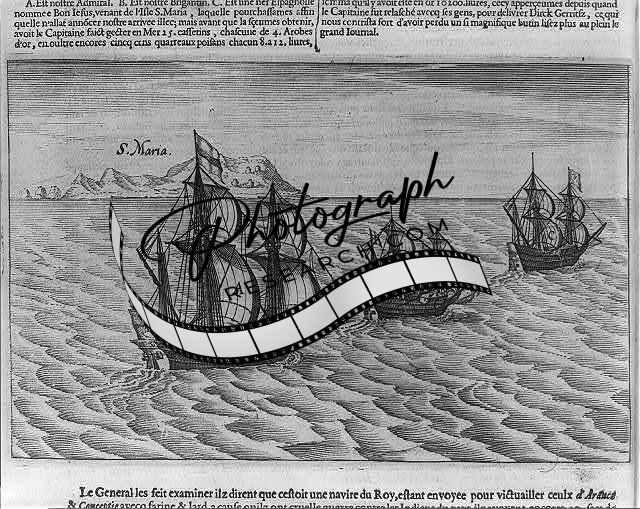 A. Est nostre Admiral. B. Est nostre Brigantin. C. Est une nef Espagnolle
nommée Bon Iesus, venant de l'Isle S. Maria, laquelle pourchassames affin
quelle n'allat annõcer nostre arrivee illec; mais avant que la sceumes obtenir,
avoit le Capitaine faict gecter en Mer 25. cassetins, chascune de 4. Arobes
d'or, en oultre encores cincq cens quarreaux poisans chacun 8.212, liures,
le Capitaine fut relasché avecq ses gens, pour delivrer Dirck Gerritsz, ce qui
nous contrista fort d'avoir perdu un si magnifique butin lisez plus au plein le
grand Iournal.
S. Maria.
Photograph
RESEARCH.COM
Le General les feit examiner ilz dirent que cestoit une navire du Roy, estant envoyee pour victuailler ceulx d'Arauco
& Conceptio avecq farine & lard a cause qu'ilz ont cruelle guerre contre les Indiens du pays